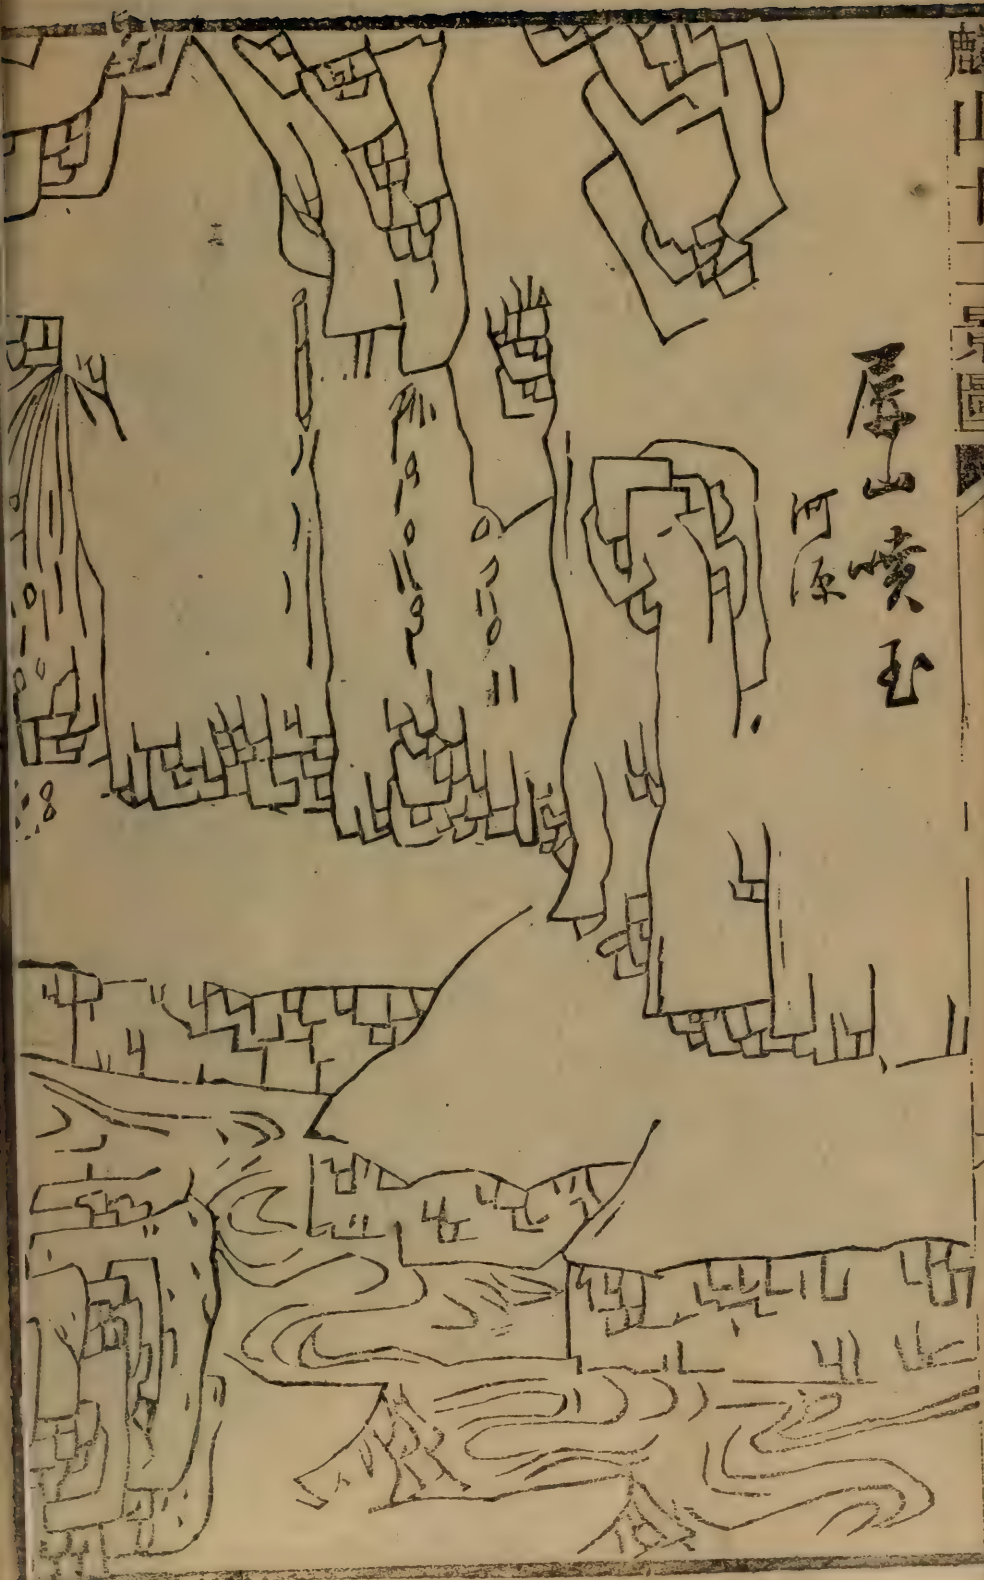 麟山十二景圖
屏山噴玉
河源